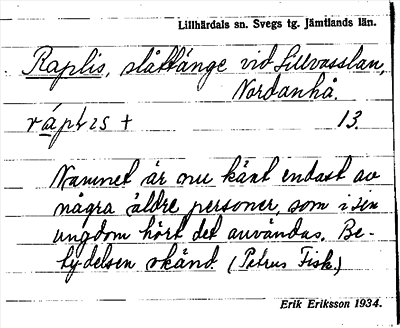 Lillhärdals sn. Svegs tg. Jämtlands län.
Raplis, slåttänge vid Lillvasslan,
Nordanhå.
ráplıs + 13.
Namnet är nu känt endast av
några äldre personer, som i sin
ungdom hört det användas. Be-
tydelsen okänd. (Petrus Fisk.)
Erik Eriksson 1934.